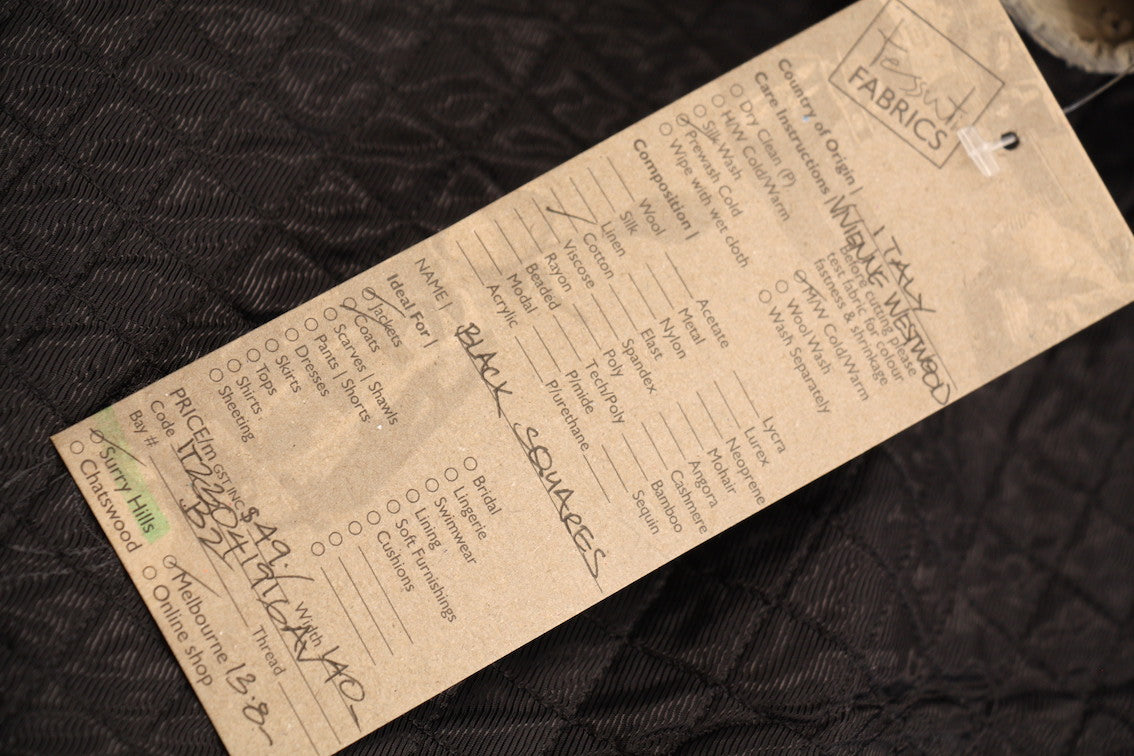 Tessuti
FABRICS
Country of Origin | ITALY
Care Instructions | VIVIENNE WESTWOOD
Dry Clean (P)
H/W Cold/Warm
Silk Wash
Prewash Cold
Wipe with wet cloth
Before cutting please
test fabric for colour
fastness & shrinkage
M/W Cold/Warm
Wool Wash
Wash Separately
Composition |
Wool
Silk
Linen
Cotton
Viscose
Rayon
Beaded
Modal
Acrylic
Acetate
Metal
Nylon
Elast
Spandex
Poly
Tech/Poly
P/mide
P/urethane
Lycra
Lurex
Neoprene
Mohair
Angora
Cashmere
Bamboo
Sequin
NAME | BLACK SQUARES
Ideal For |
Jackets
Coats
Scarves | Shawls
Pants | Shorts
Dresses
Skirts
Tops
Shirts
Sheeting
Bridal
Lingerie
Swimwear
Lining
Soft Furnishings
Cushions
PRICE/m GST INC $49.- Width 140-
Code
Bay # B2 Thread
Surry Hills
Chatswood
Melbourne 13.8
Online shop